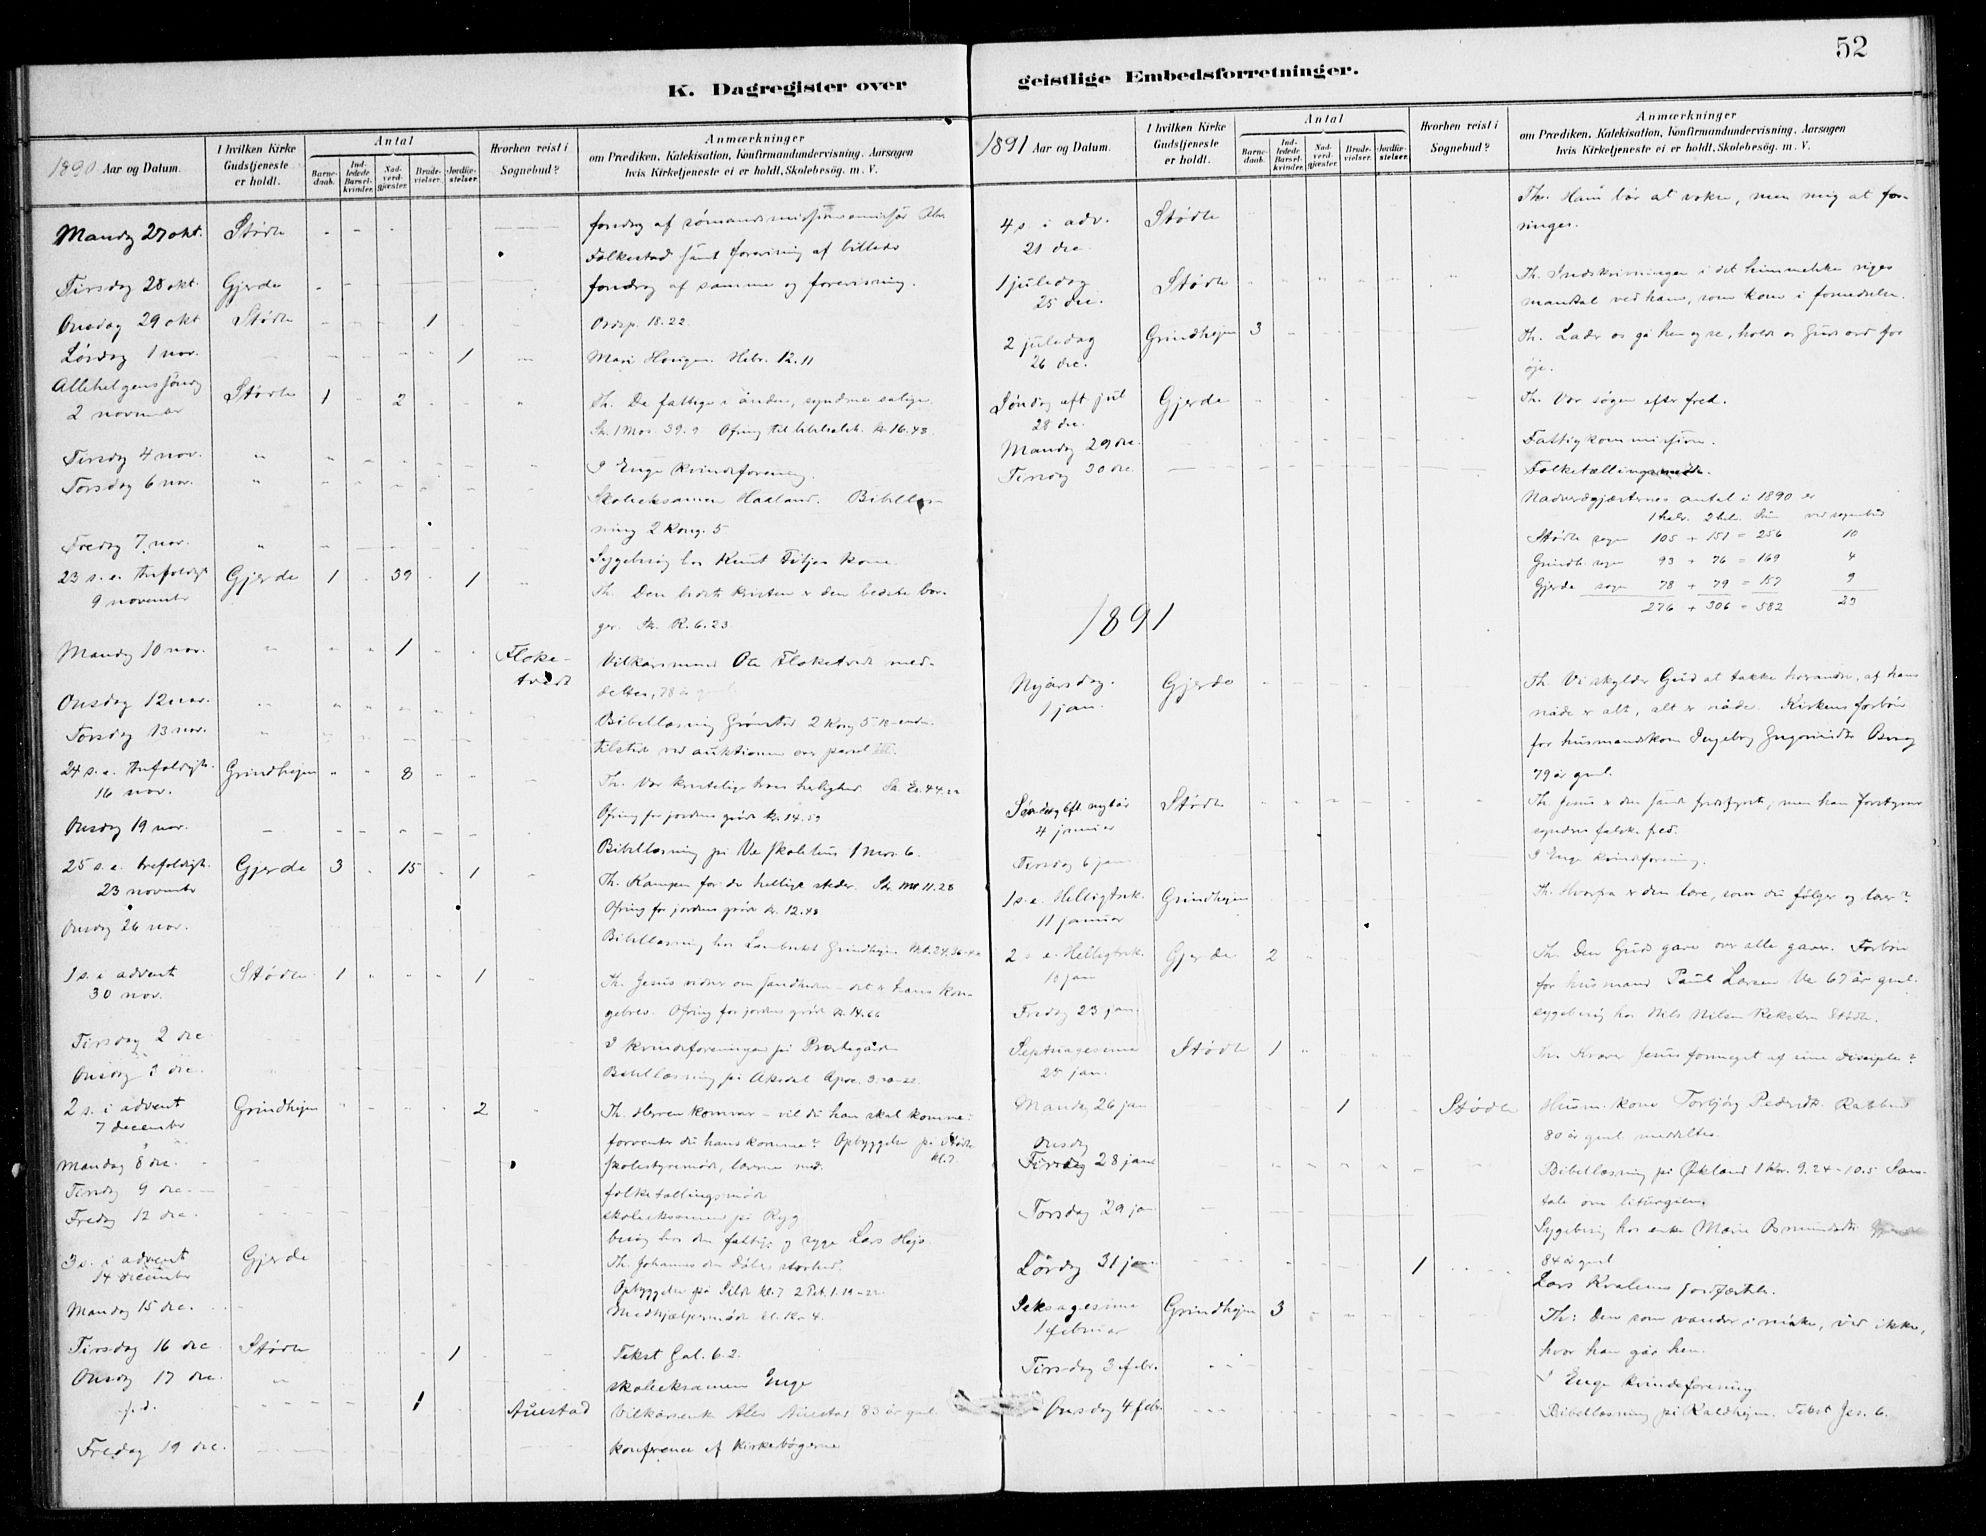 52
K. Dagregister over geistlige Embedsforretninger.
1890 Aar og Datum.
I hvilken Kirke Gudstjeneste er holdt.
Antal
Barnedaab.
Indledede Barselkvinder.
Nadverdgjæster.
Brudevielser.
Jordfæstelser.
Hvorhen reist i Sognebud?
Anmærkninger
om Prædiken, Katekisation, Konfirmandundervisning, Aarsagen
hvis Kirketjeneste ei er holdt, Skolebesøg. m. V.
Mandag 27 okt. Stødle foredrag af
Folkestad samt forevisning af billeder
Tirsdag 28 okt. Gjerde foredrag af samme og forevisning.
Onsdag 29 okt Stødle 1 Ordsp. 18.22.
Lørdag 1 nov. 1 Mari Hebr. 12.11
Allehelgenssøndag
2 november Stødle 1 2 Th. De fattige i ånden, syndere salige.
Sk. 1 Mos. 39.9 Ofring til kr. 16.48.
Tirsdag 4 nov. I Enge Kvindeforening.
Torsdag 6 nov. Skoleeksamen Haaland. Bibellæsning
2 Kong. 5
Fredag 7 nov. Sygebesøg hos Knut kone.
23 s. e. trefoldigh.
9 november Gjerde 1 39 1 Th. Den bedste kristen er den bedste borger.
Sk. R. 6.23.
Mandag 10 nov. 1 Floketvedt Vilkårsmand Ole Floketvedt meddeltes,
78 år gml
Onsdag 12 nov. Bibellæsning Grønstad 2 Kong 5
Torsdag 13 nov. tilstede ved auktionen over
24 s. e. trefoldigh.
16 nov. Grindhejm 8 Th. Vor kristelige tros herlighed Sk. Es. 44.
Ofring for jordens grøde kr. 14.59
Onsdag 19 nov. Bibellæsning på Ve skolehus 1 Mos. 6.
25 s. e. trefoldigh.
23 november Gjerde 3 15 1 Th. Kampen for de hellige steder. Sk. Mt. 11.28
Ofring for jordens grøde kr. 12.48
Onsdag 26 nov. Bibellæsning hos Lambrikt Grindhejm Mt. 24.36-
1 s. e advent
30 nov. Stødle 1 1 Th. Jesus vidner om sandheden – det er hans kongebrev.
Ofring for jordens grøde kr. 14.66
Tirsdag 2 dec. I kvindeforeningen på Prestegården
Onsdag 3 dec. Bibellæsning på Aksdal Apoc. 3.20-22.
2 s. i advent
7 december Grindhejm 2 Th. Herren kommer – vil du han skal komme:
forventer du hans komme? Opbyggelse på Stødle
kl. 7.
Mandag 8 dec. skolestyremøde, lærerne med.
Tirsdag 9 dec. folketællingsmøde
Fredag 12 dec. skoleeksamen på Ryg
besøg hos den fattige og syge Lars Hojs
3 s. i advent
14 december Gjerde Th. Johannes den døbers storhed.
Opbyggelse på kl. 7 2 Pet. 1.19-21.
Mandag 15 dec. Medhjælpermøde kl. 4.
Tirsdag 16 dec Stødle 1 Tekst Gal. 6.2.
Onsdag 17 dec. skoleeksamen Enge
s.d. 1 Austad Vilkårsenke Austad 83 år gml.
Fredag 19 dec. konference af kirkebøgerne
1891 Aar og Datum.
I hvilken Kirke Gudstjeneste er holdt.
Antal
Barnedaab.
Indledede Barselkvinder.
Nadverdgjæster.
Brudevielser.
Jordfæstelser.
Hvorhen reist i Sognebud?
Anmærkninger
om Prædiken, Katekisation, Konfirmandundervisning, Aarsagen
hvis Kirketjeneste ei er holdt, Skolebesøg. m. V.
4 s. i adv.
21 dec. Stødle Th. Ham bør at vokse, men mig at forringes.
1 juledag
25 dec. Stødle Th. Indskrivningen i det himmelske riges
mandtal ved ham, som kom i fornedrelse.
2 juledag
26 dec. Grindhejm 3 Th. Lader os gå hen og se, holde os Guds ord for
øje.
Søndag eft jul
28 dec. Gjerde Th. Vor søgen efter fred.
Mandag 29 dec. Fattigkommission.
Tirsdag 30 dec. Folketællingsmøde.
Nadverdgjæsternes antal i 1890 er
1 halv. 2 halv. Sum ved sognebud
Stødle sogn 105 + 151 = 256 10
Grindh. sogn 93 + 76 = 169 4
Gjerde sogn 78 + 79 = 157 9
276 + 306 = 582 23
1891
Nyårsdag.
1 jan. Gjerde Th. Vi skylder Gud at takke af hans
nåde er alt, alt er nåde. Kirkens forbøn
for husmandskone Ingeborg
79 år gml.
Søndag eft. nytår
4 januar Stødle Th. Jesus er den sande fredsfyrste, men han forstyrrer
syndens falske fred.
Tirsdag 6 jan I Enge kvindeforening.
1 s. e. Helligtrek.
11 januar Grindhejm Th. Hvorfra er den lære, som du følger og lærer?
2 s. e. Helligtrek.
18 jan Gjerde 2 Th. Den Guds gave over alle gaver. Forbøn
for husmand Paul Larsen Ve 67 år gml.
Fredag 23 jan. sygebesøg hos Nils Nilsen Reksten Stødle.
Septuagesima
25 jan. Stødle 1 Th. Kræver Jesus formeget af sine disciple?
Mandag 26 jan 1 Stødle Husm. kone Torbjør
80 år gml. meddeltes.
Onsdag
Tirsdag 28 jan Bibellæsning på Økland 1 Kor. 9.24-10.5 Samtale
om liturgien.
Torsdag 29 jan Sygebesøg hos enke Mari
84 år gml
Lørdag 31 jan. 1 Lars Kvalens jordfæstelse.
Seksagesima
1 februar Grindhejm 3 Th: Den som vandrer i mørke, ved ikke,
hvor han går hen.
Tirsdag 3 febr. I Enge kvindeforening
Onsdag 4 febr Bibellæsning på Kaldhejm. Tekst Jes. 6.